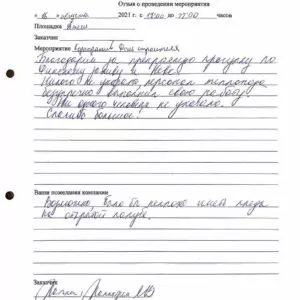 Отзыв о проведении мероприятия
« 16 » августа 2021 г. с 15:00 по 17:00 часов
Площадка
Заказчик
Мероприятие Корпоратив День строителя
Благодарим за прекрасную прогулку по
Финскому заливу и Неве.
Никого не укачало, персонал теплохода
безупречно выполнил свою работу.
Ни одного человека не укачало.
Спасибо большое.
Ваши пожелания компании
Возможно, было бы неплохо иметь пледы
на открытой палубе.
Заказчик